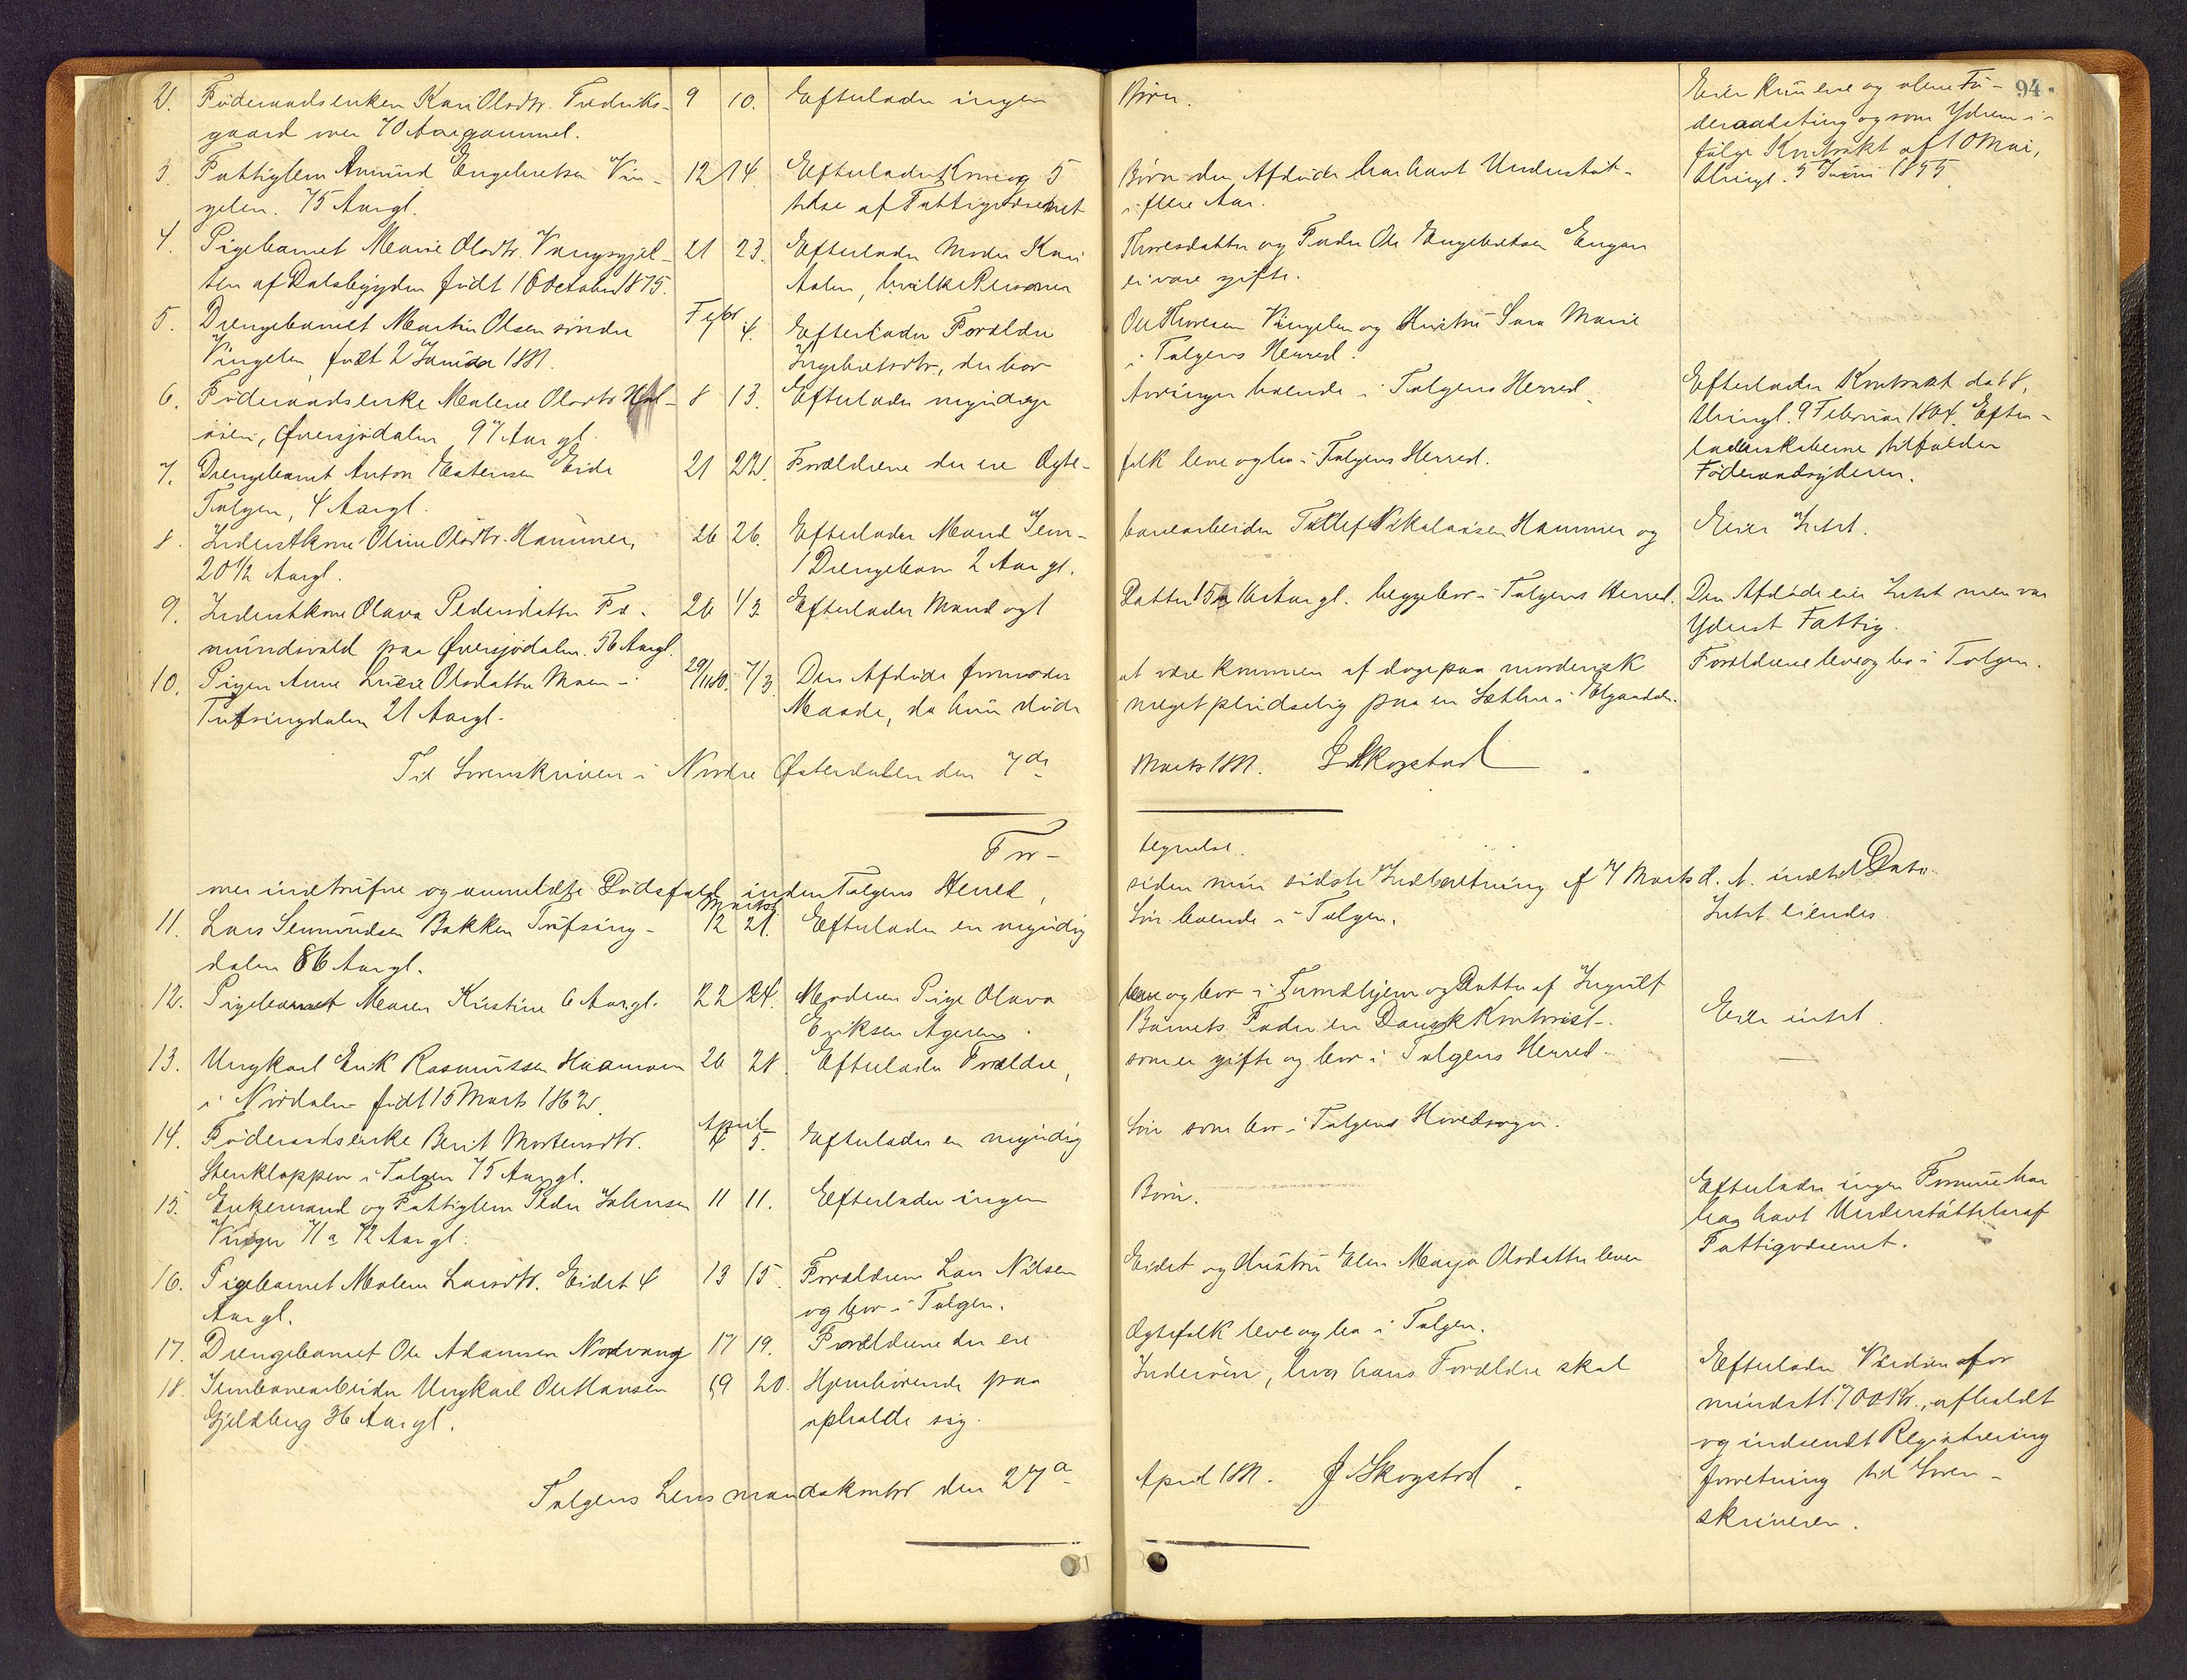 94.
2. Föderaadsenken Kari Olsdtr. Fredriks- 9 10. Efterlader ingen Börn. Eier kun ene og alene Fö-
gaard over 70 Aar gammel. deraadsting og som Yderen i-
fölge Kontrakt af 10 Mai,
3. Fattiglem Amund Engebretsen Vin- 12 14. Efterlader Kone og 5 Börn den Afdöde har havt Understöt- thingl. 5 Juni 1855.
gelen. 75 Aar gl. telse af Fattigvæsenet i flere Aar.
4. Pigebarnet Marie Olsdtr. Vangsgjel- 21 23. Efterlader Moder Kari Thoresdatter og Fader Ole Engebretsen Engan
ten af Dalsbygden födt 16 October 1875. Aalen, hvilke Personer ei vare gifte.
5. Drengebarnet Martin Olsen söndre Febr 4. Efterlader Forældre Ole Thoresen Vingelen og Hustru Sara Marie
Vingelen, födt 2 Januar 1881. Ingebretsdtr., der bor i Tolgens Herred.
6. Föderaadsenke Malene Olsdtr 8 13. Efterlader myndige Arvinger boende i Tolgens Herred. Efterlader Kontrakt dat 8,
öien, Øversjødalen 97 Aar gl. thingl. 9 Februar 1864. Efter-
7. Drengebarnet Anton Estensen Eide 21 22. Forældrene der ere Ægte- folk leve og bo i Tolgens Herred. ladenskaberne tilfalder
Tolgen, 4 Aar gl. Föderaadsyderen.
8. Inderstkone Oline Olsdtr. Hammer, 26 26. Efterlader Mand Jern- banearbeider Nikolaisen Hammer og Eier Intet.
20½ Aar gl. 1 Drengebarn 2 Aar gl.
9. Inderstkone Olava Pedersdatter Fæ- 26 1/3. Efterlader Mand og 1 Datter 15 a 16 Aar gl. begge bor i Tolgens Herred. Den Afdöde eier Intet men var
mundsvold paa Øversjødalen. 56 Aar gl. Yderst Fattig.
10. Pigen Anne Lucie Olsdatter Moen i 29/11 80. 7/3. Den Afdöde formodes at være kommen af dage paa morderisk Forældrene leve og bo i Tolgen.
Tufsingdalen 21 Aar gl. Maade, da hun döde meget pludselig paa en Sæther i Elgaadalen.
Til Sorenskriveren i Nordre Østerdalen den 7de Marts 1881. J Skogstad
For- tegnelse.
over indtrufne og anmeldte Dödsfald inden Tolgens Herred, siden min sidste Indberetning af 7 Marts d. A. indtil Dato.
Marts
11. Lars Simundsen Bakken Tufsing- 12 21. Efterlader en myndig Sön boende i Tolgen. Intet eiendes.
dalen 86 Aar gl.
12. Pigebarnet Maren Kristine 6 Aar gl. 22 24. Moderen Pige Olava leve og bor i Trondhjem og Datter af Ingulf
Eriksen Ageren. Barnets Fader en Dansk Kontorist. Eier intet.
13. Ungkarl Erik Rasmussen Haamoen 26 28. Efterlader Forældre, som er gifte og bor i Tolgens Herred. —
i Nordalen födt 15 Marts 1862.
April
14. Föderaadsenke Berit Mortensdtr. 4 5. Efterlader en myndig Sön som bor i Tolgens Hovedsogn.
Stenkloppen i Tolgen 75 Aar gl.
15. Enkemand og Fattiglem Peder Johnsen 11 11. Efterlader ingen Börn. Efterlader ingen Formue har
71 a 72 Aar gl. havt Understöttelse af
Fattigvæsenet.
16. Pigebarnet Malene Larsdtr. Eidet 4 13 15. Forældrene Lars Nilsen Eidet og Hustru Elen Marja Olsdatter lever
Aar gl. og bor i Tolgen.
17. Drengebarnet Ole Adamsen Nordvang 17 19. Forældrene der ere Ægtefolk leve og bo i Tolgen.
18. Jernbanearbeider Ungkarl Ole Hansen 19 20. Hjemhörende paa Inderöen, hvor hans Forældre skal Efterlader Værdier for
Gjeldberg 36 Aar gl. opholde sig. mindst 1700 Kr., afholdt
og indsendt Registrering
Tolgens Lensmandskontor den 27de April 1881. J Skogstad. forretning til Soren-
skriveren.